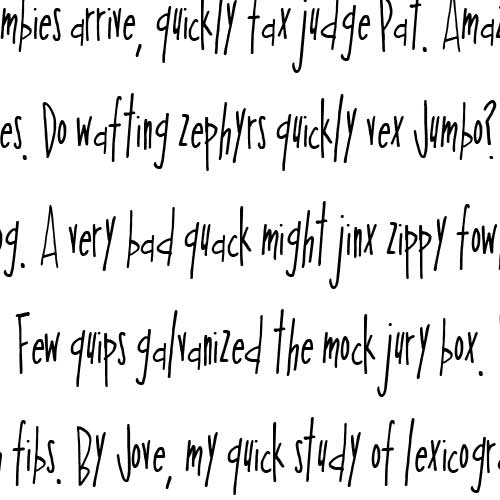 mbies arrive, quickly fax judge Pat. Ama
es. Do wafting zephyrs quickly vex Jumbo?
og. A very bad quack might jinx zippy fow
Few quips galvanized the mock jury box.
fibs. By Jove, my quick study of lexicogra